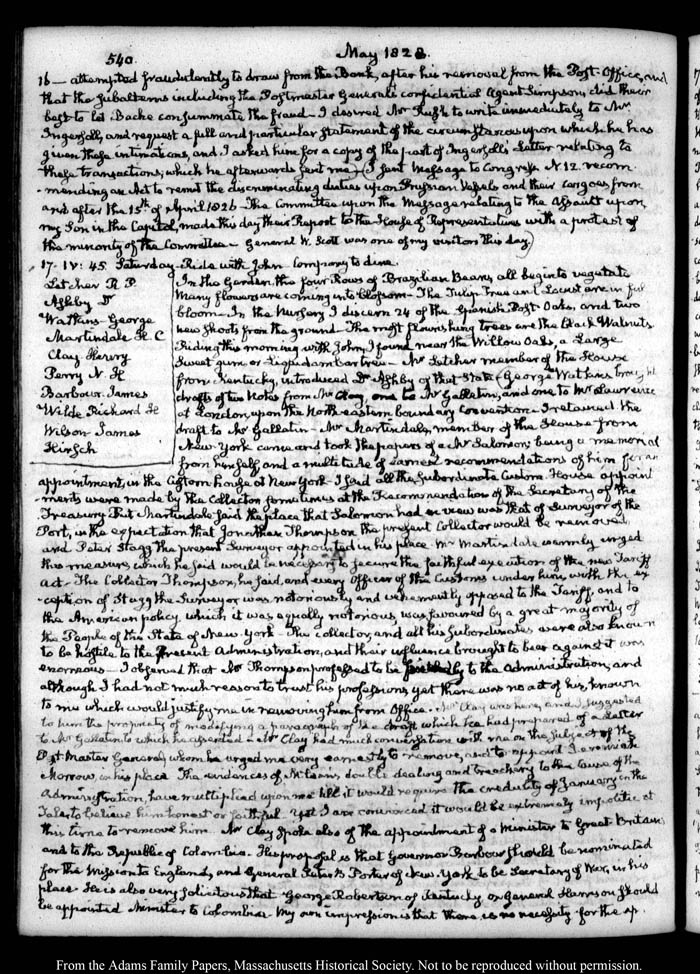 540.
May 1828.
16 — attempted fraudulently to draw from the Bank, after his removal from the Post-Office, and
that the subalterns including the Postmaster General's confidential Agent Simpson, did their
best to let Bache consummate the fraud — I desired Mr Rush to write immediately to Mr
Ingersoll, and request a full and particular statement of the circumstances upon which he has
given these intimations, and I asked him for a copy of the part of Ingersoll's Letter relating to
these transactions, which he afterwards sent me — (I sent Message to Congress N. 12 recom-
-mending an Act to remit the discriminating duties upon Prussian Vessels and their cargoes from
and after the 15th of April 1826 — The Committee upon the Message relating to the Assault upon
my Son in the Capitol, made this day their Report to the House of Representatives with a protest of
the minority of the Committee — General W. Scott was one of my visitors this day.)
17. IV: 45. Saturday — Ride with John. Company to dine.
Letcher R. P.
Ashby Dr
Watkins George
Martindale H. C
Clay Henry
Perry N. H
Barbour James
Wilde Richard H
Wilson James
Kirsch
In the Garden, the four Rows of Brazilian Beans all begin to vegetate
Many flowers are coming into blossom — The Tulip Tree and Locust are in full
bloom — In the Nursery I discern 24 of the Spanish Post-Oaks, and two
new shoots from the ground — The most flourishing trees are the black Walnuts
Riding this morning with John, I found near the Willow Oaks, a Large
Sweet gum or Liquidambar tree — Mr Letcher member of the House
from Kentucky, introduced Dr Ashby of that State (George Watkins brought
drafts of two Notes from Mr Clay, one to Mr Gallatin, and one to Mr Lawrence
at London, upon the North eastern boundary Convention — I retained the
draft to Mr Gallatin — Mr Martindale, member of the House from
New-York came and took the papers of a Mr Salomon; being a memorial
from himself and a multitude of earnest recommendations of him for an
appointment, in the Custom house at New York — I said all the subordinate Custom House appoint
-ments were made by the Collector, sometimes at the Recommendation of the Secretary of the
Treasury But Martindale said the place that Salomon had in view was that of Surveyor of the
Port, in the expectation that Jonathan Thompson the present Collector would be removed,
and Peter Stagg the present Surveyor appointed in his place — Mr Martindale warmly urged
this measure, which he said would be necessary to secure the faithful execution of the new Tariff
Act — The Collector Thompson, he said, and every Officer of the Customs under him, with the ex
-ception of Stagg the Surveyor was notoriously and vehemently opposed to the Tariff, and to
the American policy, which it was equally notorious was favoured by a great majority of
the People of the State of New-York — The collector, and all his Subordinates were also known
to be hostile to the present Administration, and their influence brought to bear against it was
enormous — I observed that Mr Thompson professed to be friendly to the Administration, and
although I had not much reason to trust his professions, yet there was no act of his, known
to me which would justify me in removing him from Office — Mr Clay was here, and I suggested
to him the propriety of modifying a paragraph of the draft which he had prepared of a Letter
to Mr Gallatin to which he assented — Mr Clay had much conversation with me on the subject of the
Post Master General, whom he urged me very earnestly to remove, and to appoint Jeremiah
Morrow, in his place. The evidences of McLean's double dealing and treachery to the cause of the
Administration, have multiplied upon me till it would require the credulity of January in the
Tale to believe him honest or faithful. Yet I am convinced it would be extremely impolitic at
this time to remove him. Mr Clay spoke also of the appointment of a Minister to Great Britain
and to the Republic of Colombia. His proposal is that Governor Barbour should be nominated
for the Mission to England, and General Peter B Porter of New-York to be Secretary of War, in his
place. He is also very solicitous that George Robertson of Kentucky or General Harrison should
be appointed Minister to Colombia. My own impression is that there is no necessity for the ap-
From the Adams Family Papers, Massachusetts Historical Society. Not to be reproduced without permission.